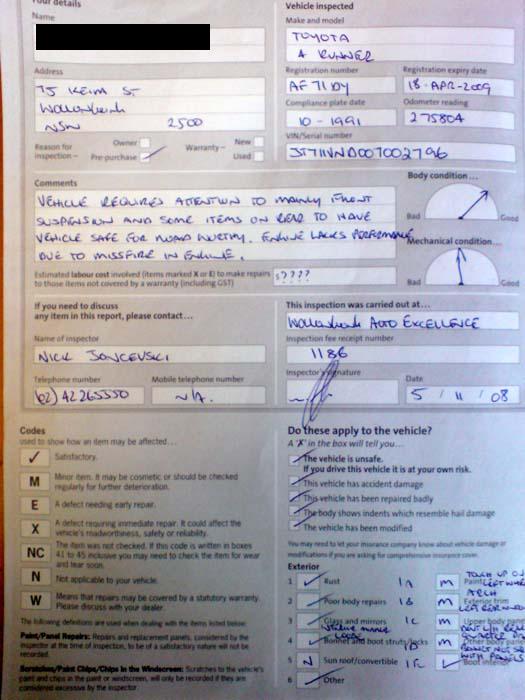 Your details
Name
Address
75 KEIRA ST
WOLLONGONG
NSW 2500
Reason for inspection –
Owner
Pre-purchase
Warranty – New
Used
Vehicle inspected
Make and model
TOYOTA
4 RUNNER
Registration number
Registration expiry date
AF 71 DY
18-APR-2009
Compliance plate date
Odometer reading
10 - 1991
275804
VIN/Serial number
JT711VND007002796
Comments
VEHICLE REQUIRES ATTENTION TO MAINLY FRONT
SUSPENSION AND SOME ITEMS ON REAR TO HAVE
VEHICLE SAFE FOR ROAD WORTHY. ENGINE LACKS PERFORMANCE
DUE TO MISFIRE IN ENGINE.
Estimated labour cost involved (items marked X or E) to make repairs
to those items not covered by a warranty (including GST)
$????
Body condition...
Bad
Good
Mechanical condition...
Bad
Good
If you need to discuss
any item in this report, please contact...
Name of inspector
NICK JONCEVSKI
Telephone number
Mobile telephone number
(02) 42265550
N/A.
This inspection was carried out at...
WOLLONGONG AUTO EXCELLENCE
Inspection fee receipt number
1186
Inspector's signature
Date
5 / 11 / 08
Codes
used to show how an item may be affected...
✓ Satisfactory.
M Minor item. It may be cosmetic or should be checked
regularly for further deterioration.
E A defect needing early repair.
X A defect requiring immediate repair. It could affect the
vehicle's roadworthiness, safety or reliability.
NC The item was not checked. If this code is written in boxes
41 to 45 inclusive you may need to check the item for wear
and tear soon.
N Not applicable to your vehicle.
W Means that repairs may be covered by a statutory warranty.
Please discuss with your dealer.
The following definitions are used when dealing with the items listed below:
Paint/Panel Repairs: Repairs and replacement panels, considered by the
inspector at the time of inspection, to be of a satisfactory nature will not be
recorded.
Scratches/Paint Chips/Chips in the Windscreen: Scratches to the vehicle's
paint and chips in the paint or windscreen, will only be recorded if they are
considered excessive by the inspector.
Do these apply to the vehicle?
A 'X' in the box will tell you...
The vehicle is unsafe.
If you drive this vehicle it is at your own risk.
This vehicle has accident damage
This vehicle has been repaired badly
The body shows indents which resemble hail damage
The vehicle has been modified
You may need to let your insurance company know about vehicle damage or
modifications if you are asking for comprehensive insurance cover.
Exterior
1 ✓ Rust
2 ✓ Poor body repairs
3 Glass and mirrors
4 Bonnet and boot struts/locks
5 N Sun roof/convertible
6 ✓ Other
1A M Paint
TOUCH UP ON
ARCH
1B M Exterior trim
1C M Upper body
1D M Other body
1E ✓ Boot interior